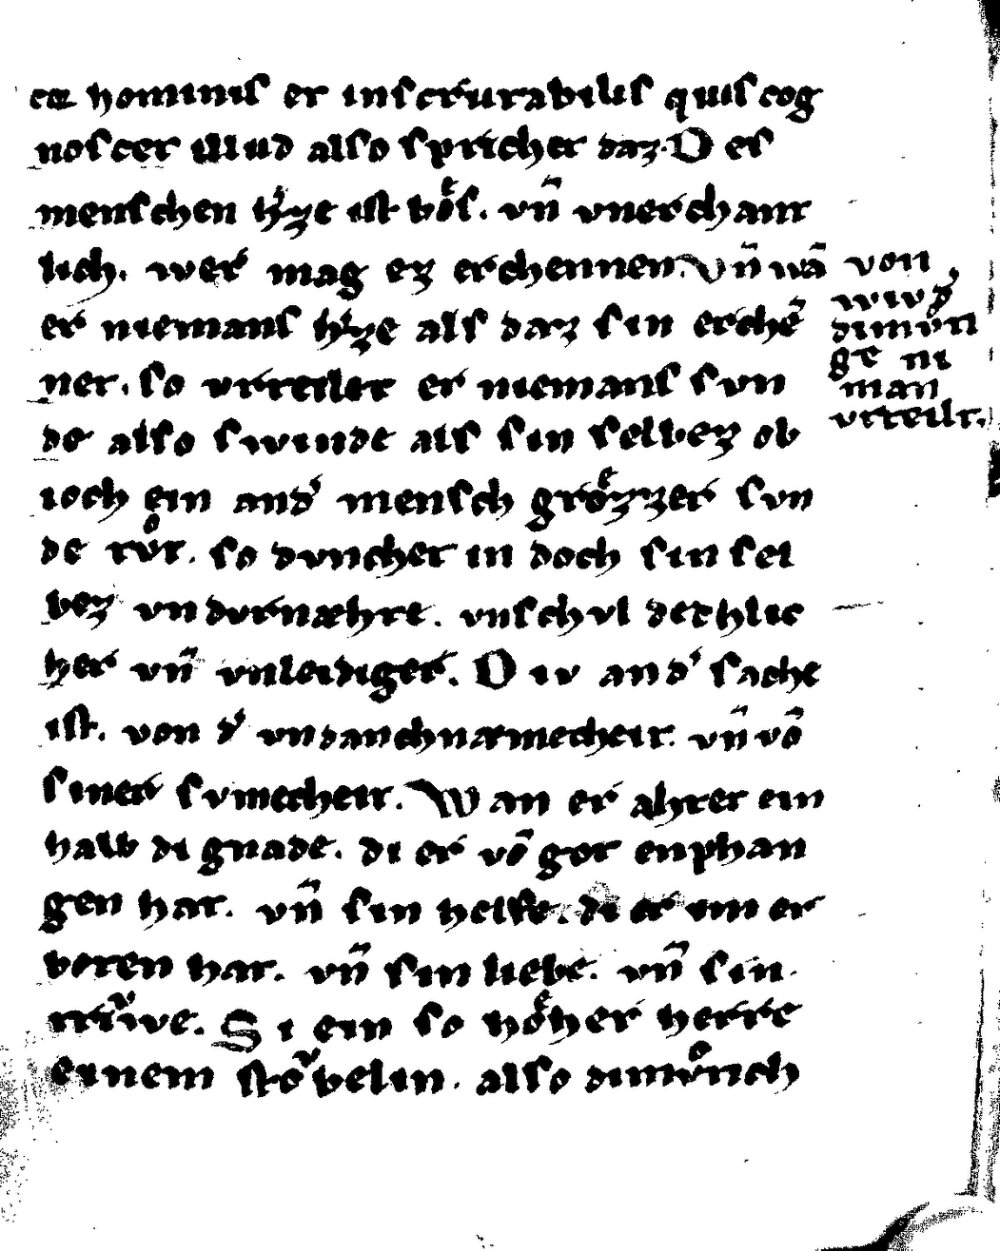 cor hominis et inscrutabilis quis cog
noscet illud also sprichet daz. D es
menschen h'ze ist boͤs. vn̄ vnerchant
lich. wer mag ez erchennen. Vn̄ wā
er niemans h'ze als daz sin erchē
net. so vrteilet er niemans svn
de also swinde als sin selbez ob
ioch ein and' mensch groͤzzer svn
de tvͦt. so dvnchet in doch sin sel
bez vn dvrnæhte. vnschvl dechlic
her vn̄ vnleidiger. D iv and' sache
ist. von d' vndanchnæmecheit. vn̄ vō
siner svmecheit. W an er ahtet ein
halb di gnade. di er vō got enphan
gen hat. vn̄ sin helfe. di er im er
boten hat. vn̄ sin liebe. vn̄ sin
triͮwe. S i ein so hoͤher herre
einem stoͮbelin. also dimvͦtich
von
wiv d'
dimvͦti
ge ni
man
vrteilt.